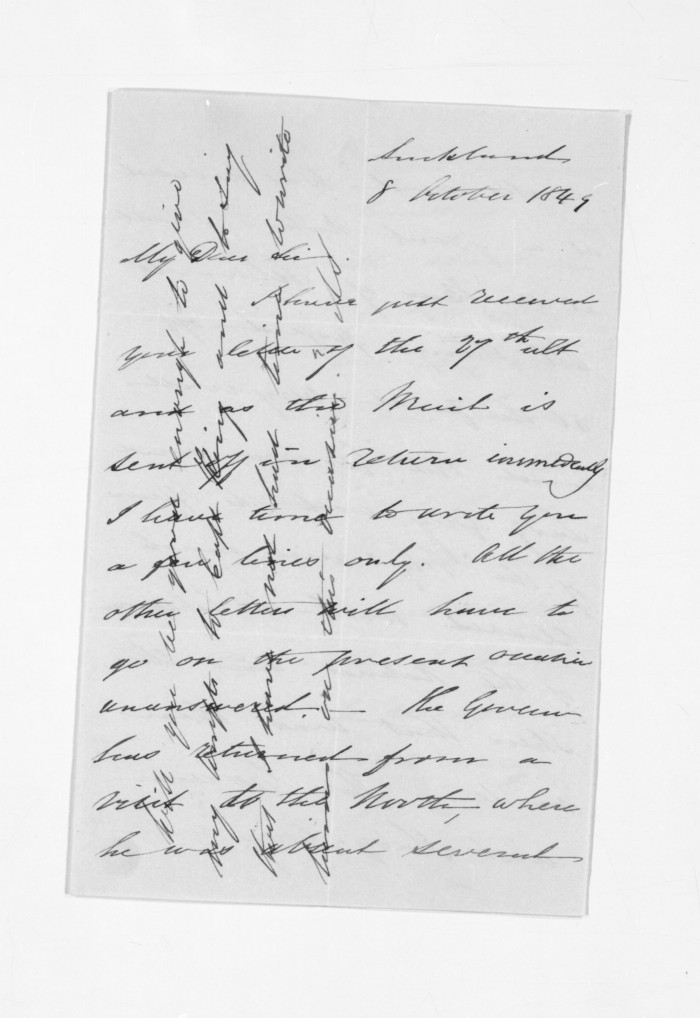 Auckland
8 October 1849
My Dear Sir
I have just received
your letter of the 27th ult
and as the Mail is
sent off in return immediately
I have time to write you
a few lines only. All the
other letters will have to
go on the present occasion
unanswered — The Governor
has returned from a
visit to the North, where
he was absent several
Will you be good enough to give
my compts to Capt King and to say
that I have not had time to write
him on this occasion.